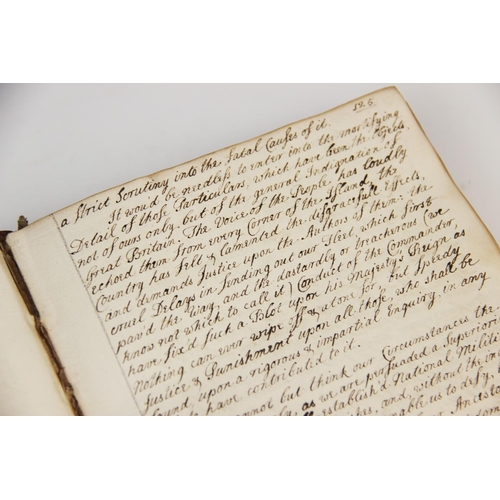 126.
a Strict Scrutiny into the Fatal Causes of it.
It would be needless to enter into the mortifying
Detail of those Particulars, which have been the Objects,
not of ours only, but of the general Indignation of
Great Britain. The Voice of the People has loudly
echoed them from every Corner of the Island, the
Country has felt & lamented the disgracefull Effects,
and demands Justice upon the Authors of them: the
cruel Delays in sending out our Fleet, which first
pav'd the Way, and the dastardly or treacherous (we
know not which to call it) Conduct of the Commander
have fix'd such a Blot upon his Majesty's Reign as
Nothing can ever wipe off & atone for, but speedy
Justice & Punishment upon all those, who shall be
found, upon a rigorous & impartial Enquiry, in any
to have contributed to it.
cannot but think our Circumstances the
as we are persuaded a Superiori
establish'd National Milit
and without the in
enable us to defy,
our Ancesto